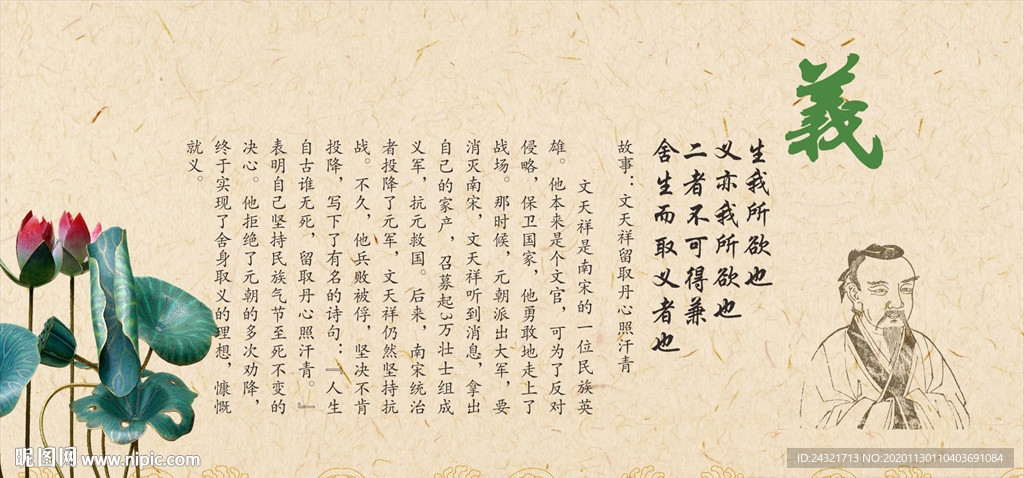 義
生我所欲也
义亦我所欲也
二者不可得兼
舍生而取义者也
故事：文天祥留取丹心照汗青
文天祥是南宋的一位民族英
雄。他本来是个文官，可为了反对
侵略，保卫国家，他勇敢地走上了
战场。那时候，元朝派出大军，要
消灭南宋，文天祥听到消息，拿出
自己的家产，召募起3万壮士组成
义军，抗元救国。后来，南宋统治
者投降了元军，文天祥仍然坚持抗
战。不久，他兵败被俘，坚决不肯
投降，写下了有名的诗句：『人生
自古谁无死，留取丹心照汗青。』
表明自己坚持民族气节至死不变的
决心。他拒绝了元朝的多次劝降，
终于实现了舍身取义的理想，慷慨
就义。
昵图网 www.nipic.com
ID:24321713 NO:20201130110403691084